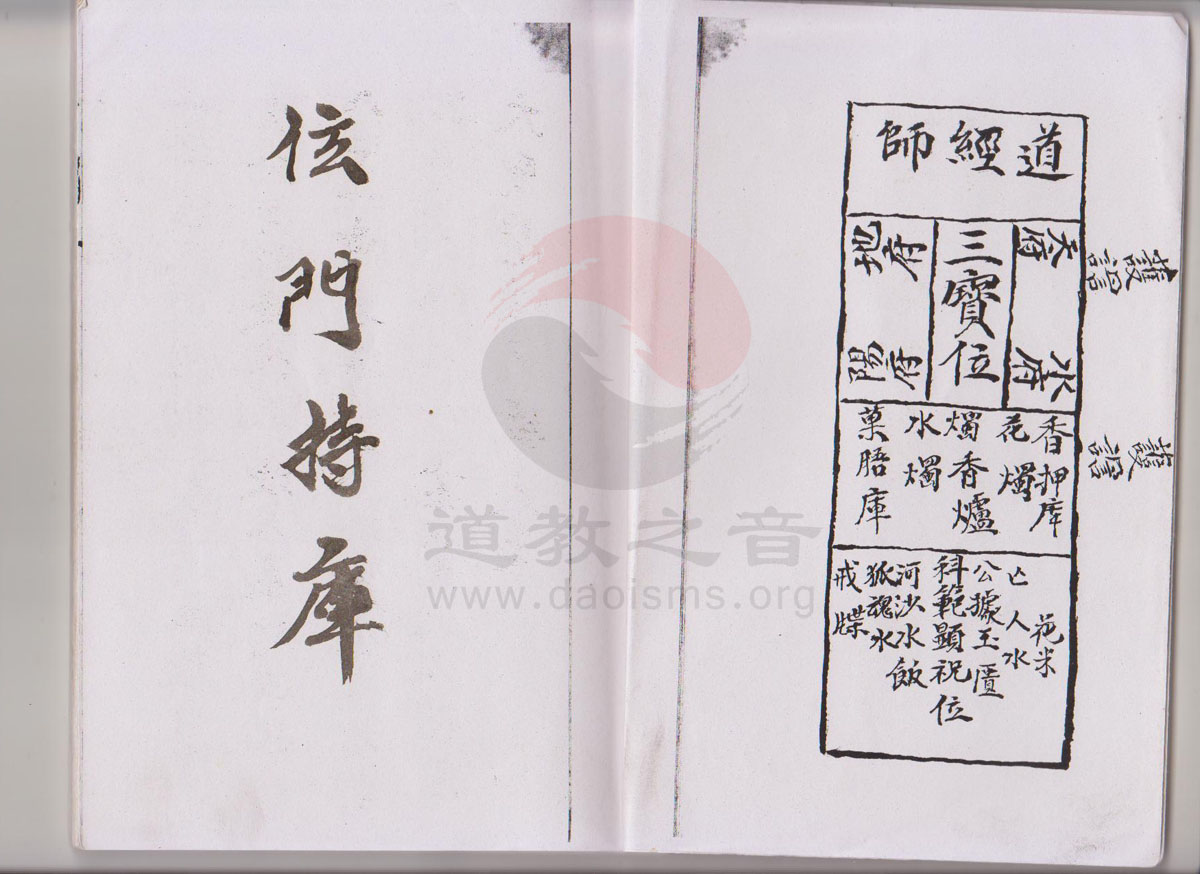 道經師
天府
水府
三寶位
地府
陽府
香押庫
花燭
燭香爐
水燭
菓腊庫
花米
亡人水
公據玉匱
科範顯祝位
河沙水飯
狐魂水
戒牒
門持庫
道教之音
www.daoisms.org